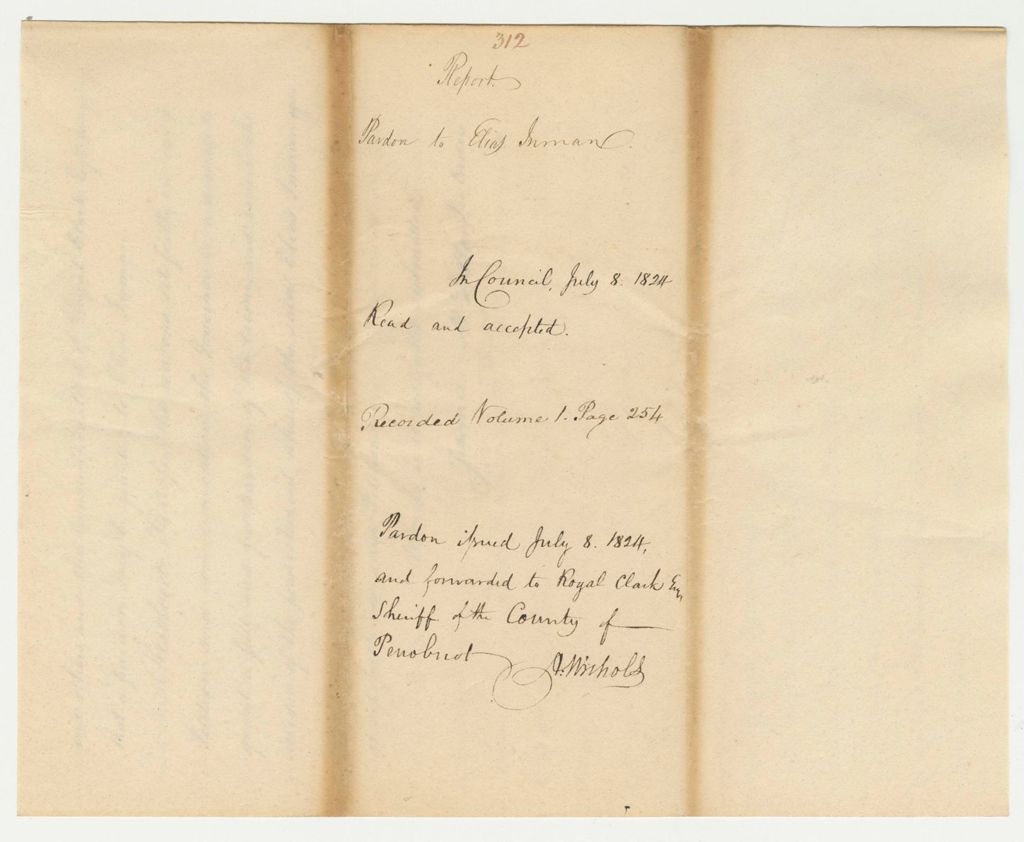 312
Report
Pardon to Elias Inman.
In Council, July 8. 1824
Read and accepted.
Recorded Volume 1. Page 254
Pardon issued July 8. 1824,
and forwarded to Royal Clark Esq
Sheriff of the County of
Penobscot A. Nichols